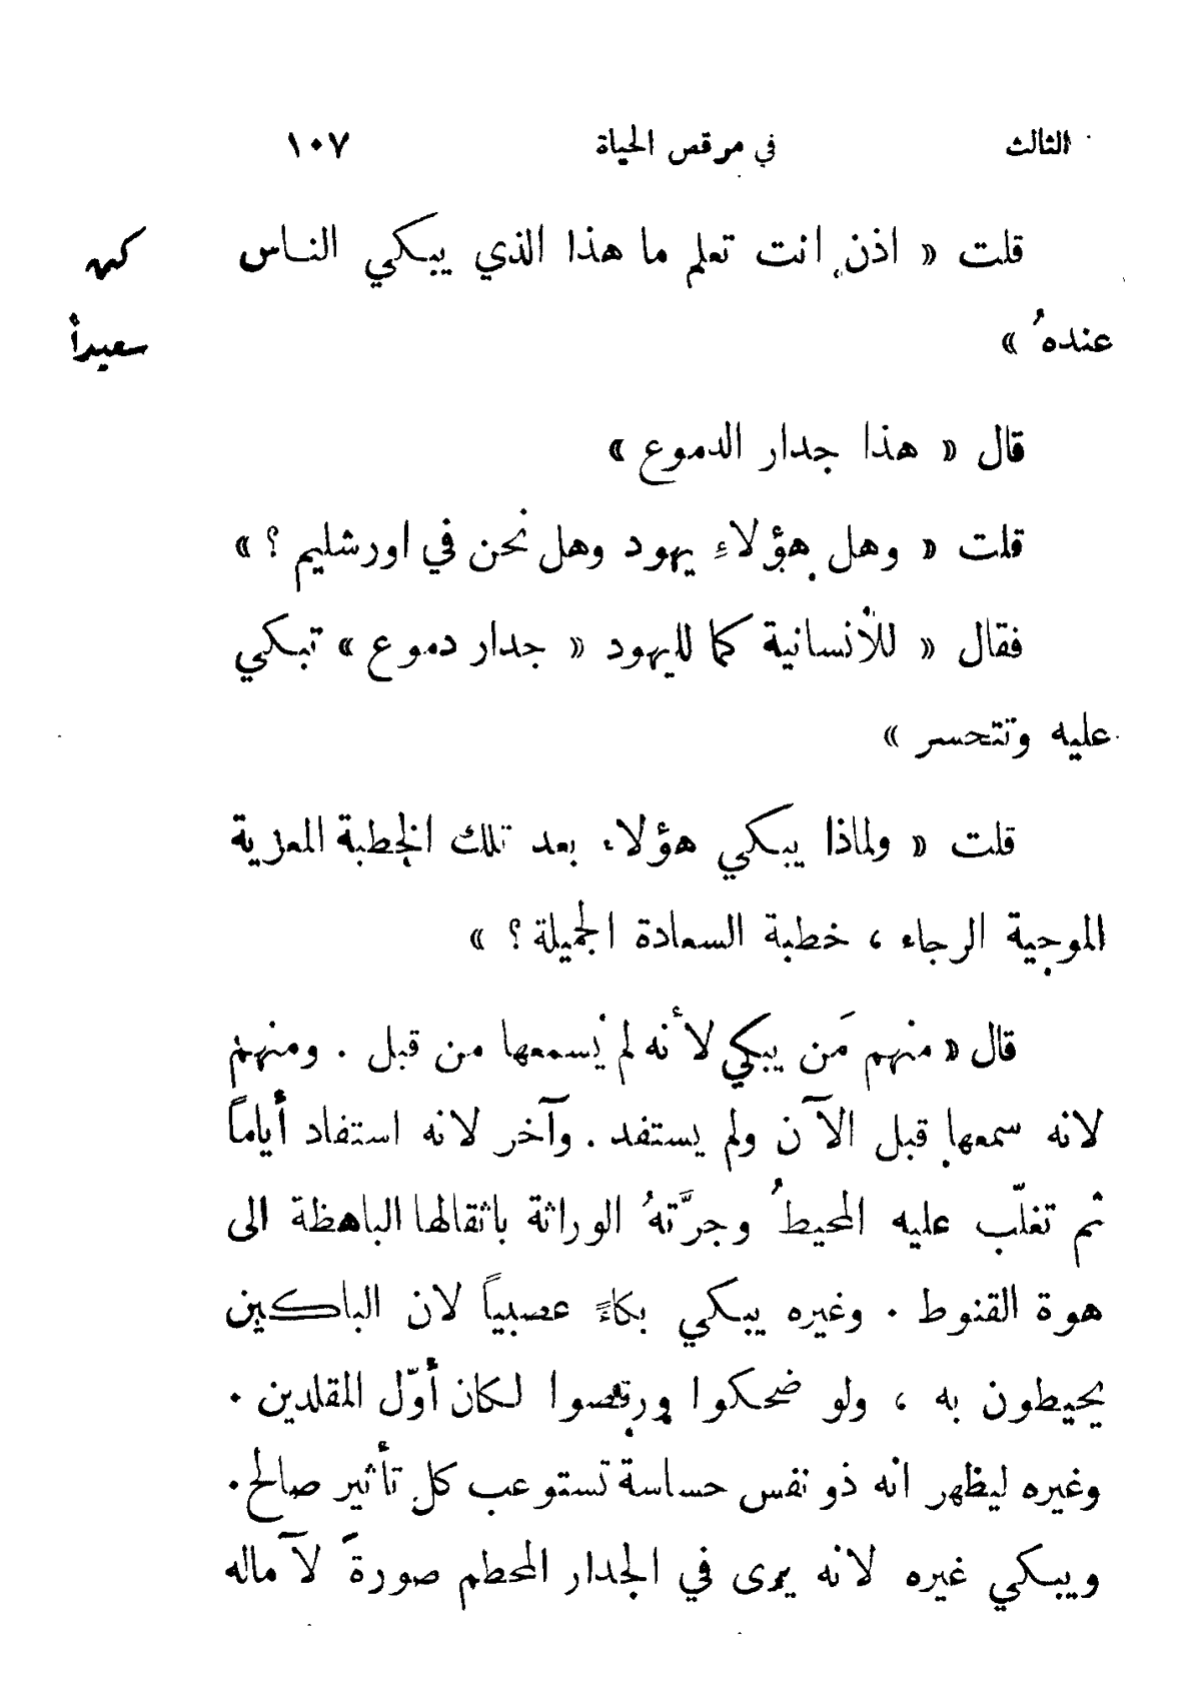 الثالث في مرقص الحياة ١٠٧
قلت « اذن انت تعلم ما هذا الذي يبكي الناس كن
عندهُ » سعيداً
قال « هذا جدار الدموع »
قلت « وهل هؤلاءِ يهود وهل نحن في اورشليم ؟ »
فقال « للأنسانية كما لليهود « جدار دموع » تبكي
عليه وتتحسر »
قلت « ولماذا يبكي هؤلاء بعد تلك الخطبة المعزية
الموحية الرجاء ، خطبة السعادة الجميلة ؟ »
قال « منهم مَن يبكي لأنه لم يسمعها من قبل . ومنهم
لانه سمعها قبل الآن ولم يستفد . وآخر لانه استفاد أياماً
ثم تغلّب عليه المحيطُ وجرَّتهُ الوراثة باثقالها الباهظة الى
هوة القنوط . وغيره يبكي بكاءً عصبياً لان الباكين
يحيطون به ، ولو ضحكوا ورقصوا لكان أوّل المقلدين .
وغيره ليظهر انه ذو نفس حساسة تستوعب كل تأثير صالح .
ويبكي غيره لانه يرى في الجدار المحطم صورةً لآماله